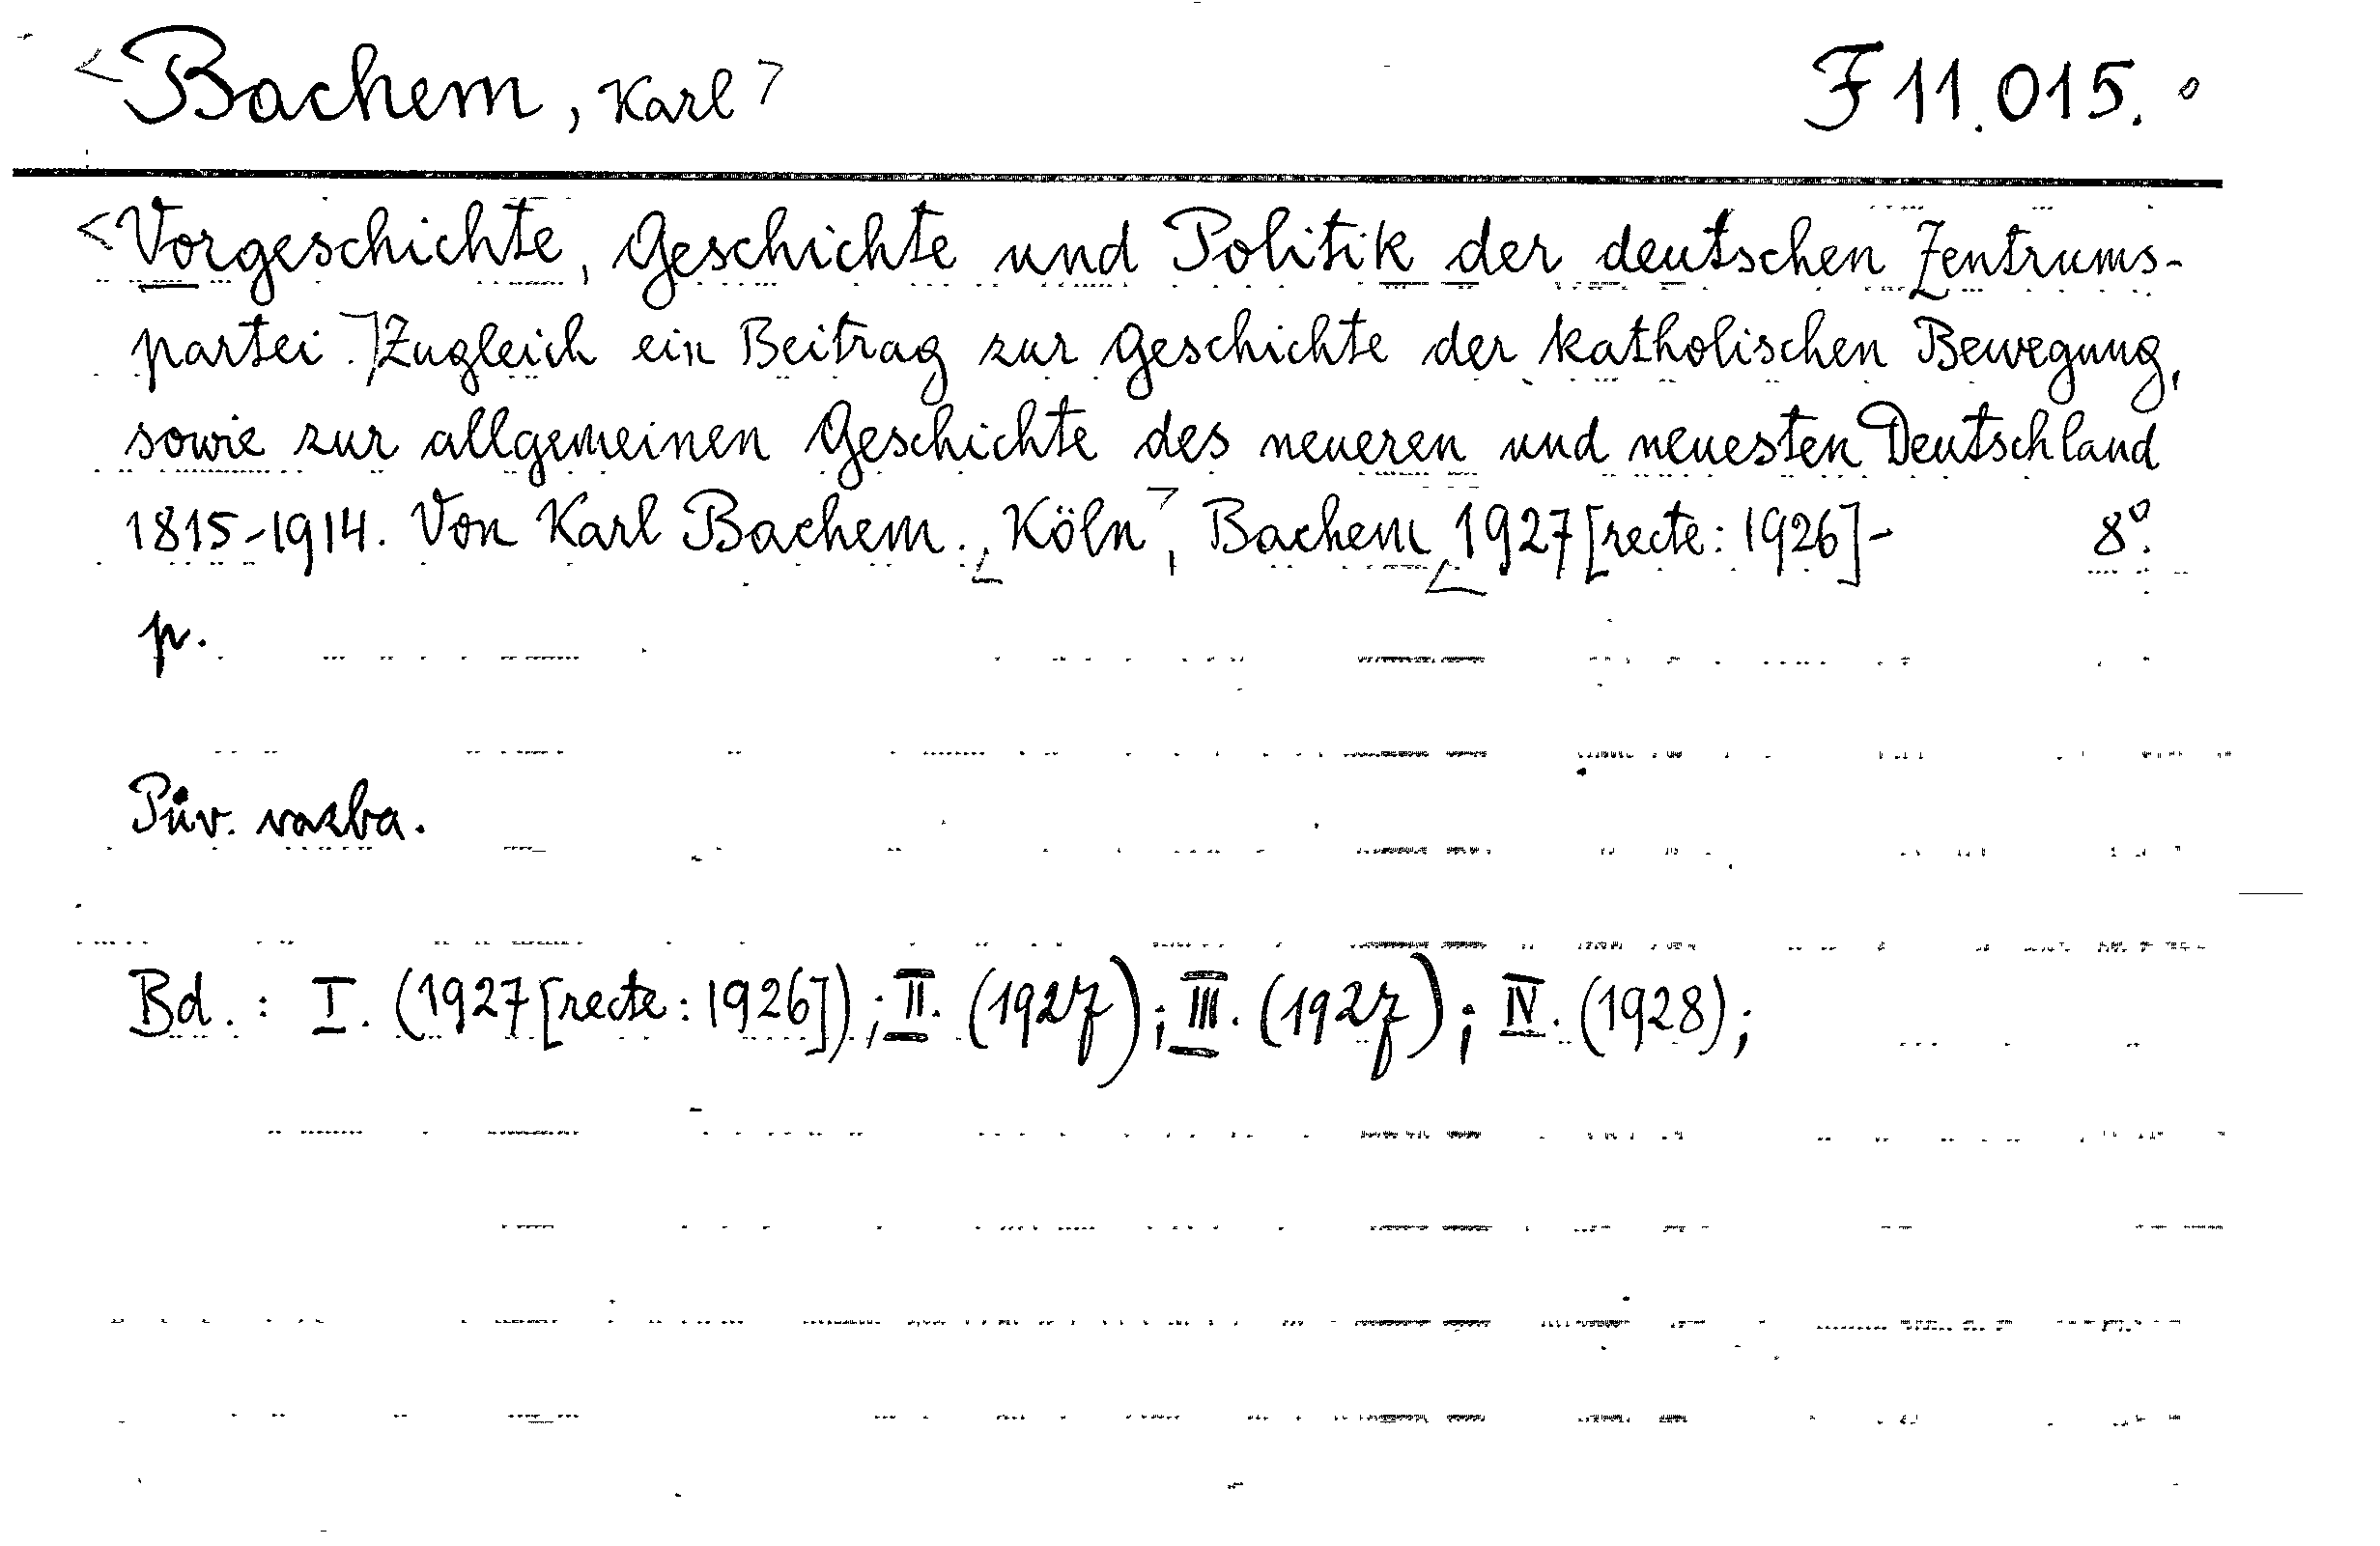 <Bachem, Karl> F 11.015.
<Vorgeschichte, Geschichte und Politik der deutschen Zentrums-
partei.> Zugleich ein Beitrag zur Geschichte der katholischen Bewegung,
sowie zur allgemeinen Geschichte des neueren und neuesten Deutschland
1815-1914. Von Karl Bachem. <Köln>, Bachem <1927 [recte: 1926]- 8°.
p.
Pův. vazba.
Bd.: I. (1927 [recte: 1926]); II. (1927); III. (1927); IV. (1928);